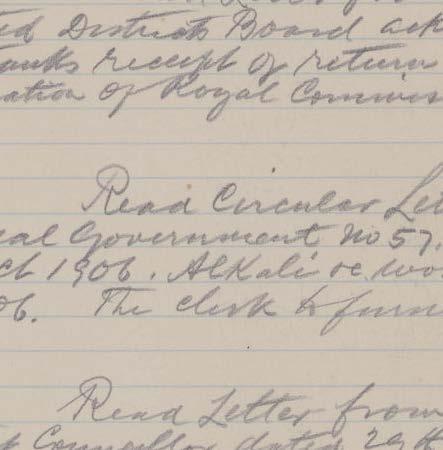 ted Districts Board ack
anks receipt of return
ation of Royal Commis
Read Circular Let
cal Government No 57.
ch 1906. Alkali &c wor
06. The clerk to furn
Read Letter from
Councillor dated 29th